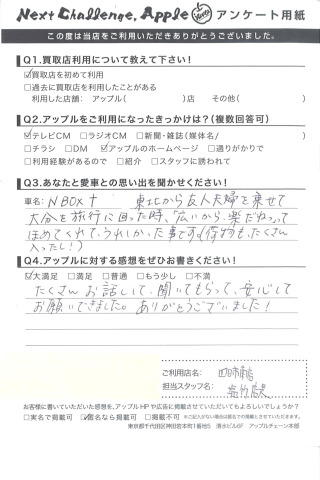 Next Challenge, Apple アンケート用紙
この度は当店をご利用いただきありがとうございました。
Q1.買取店利用について教えて下さい!
☑買取店を初めて利用
□過去に買取店を利用したことがある
利用した店舗: アップル( )店 その他( )
Q2.アップルをご利用になったきっかけは?(複数回答可)
☑テレビCM □ラジオCM □新聞・雑誌(媒体名/ )
□チラシ □DM ☑アップルのホームページ □通りがかりで
□利用経験があるので □紹介 □スタッフに誘われて
Q3.あなたと愛車との思い出を聞かせてください!
車名: NBOX+ 東北から友人夫婦を乗せて
大分を旅行に回った時、「広いから、楽だねっ」って
ほめてくれて、うれしかった事です。(荷物も、たくさん
入ったし!)
Q4.アップルに対する感想をぜひお書きください!
☑大満足 □満足 □普通 □もう少し □不満
たくさんお話しして、聞いてもらって、安心して
お願いできました。ありがとうございました!
ご利用店名:
担当スタッフ名:
お客様に書いていただいた感想を、アップルHPや広告に掲載させていただいてもよろしいでしょうか?
□実名で掲載可 ☑匿名なら掲載可 □掲載不可 ※ご記入がない場合は匿名での掲載とさせていただきます。
東京都千代田区神田岩本町1番地5 清水ビル6F アップルチェーン本部